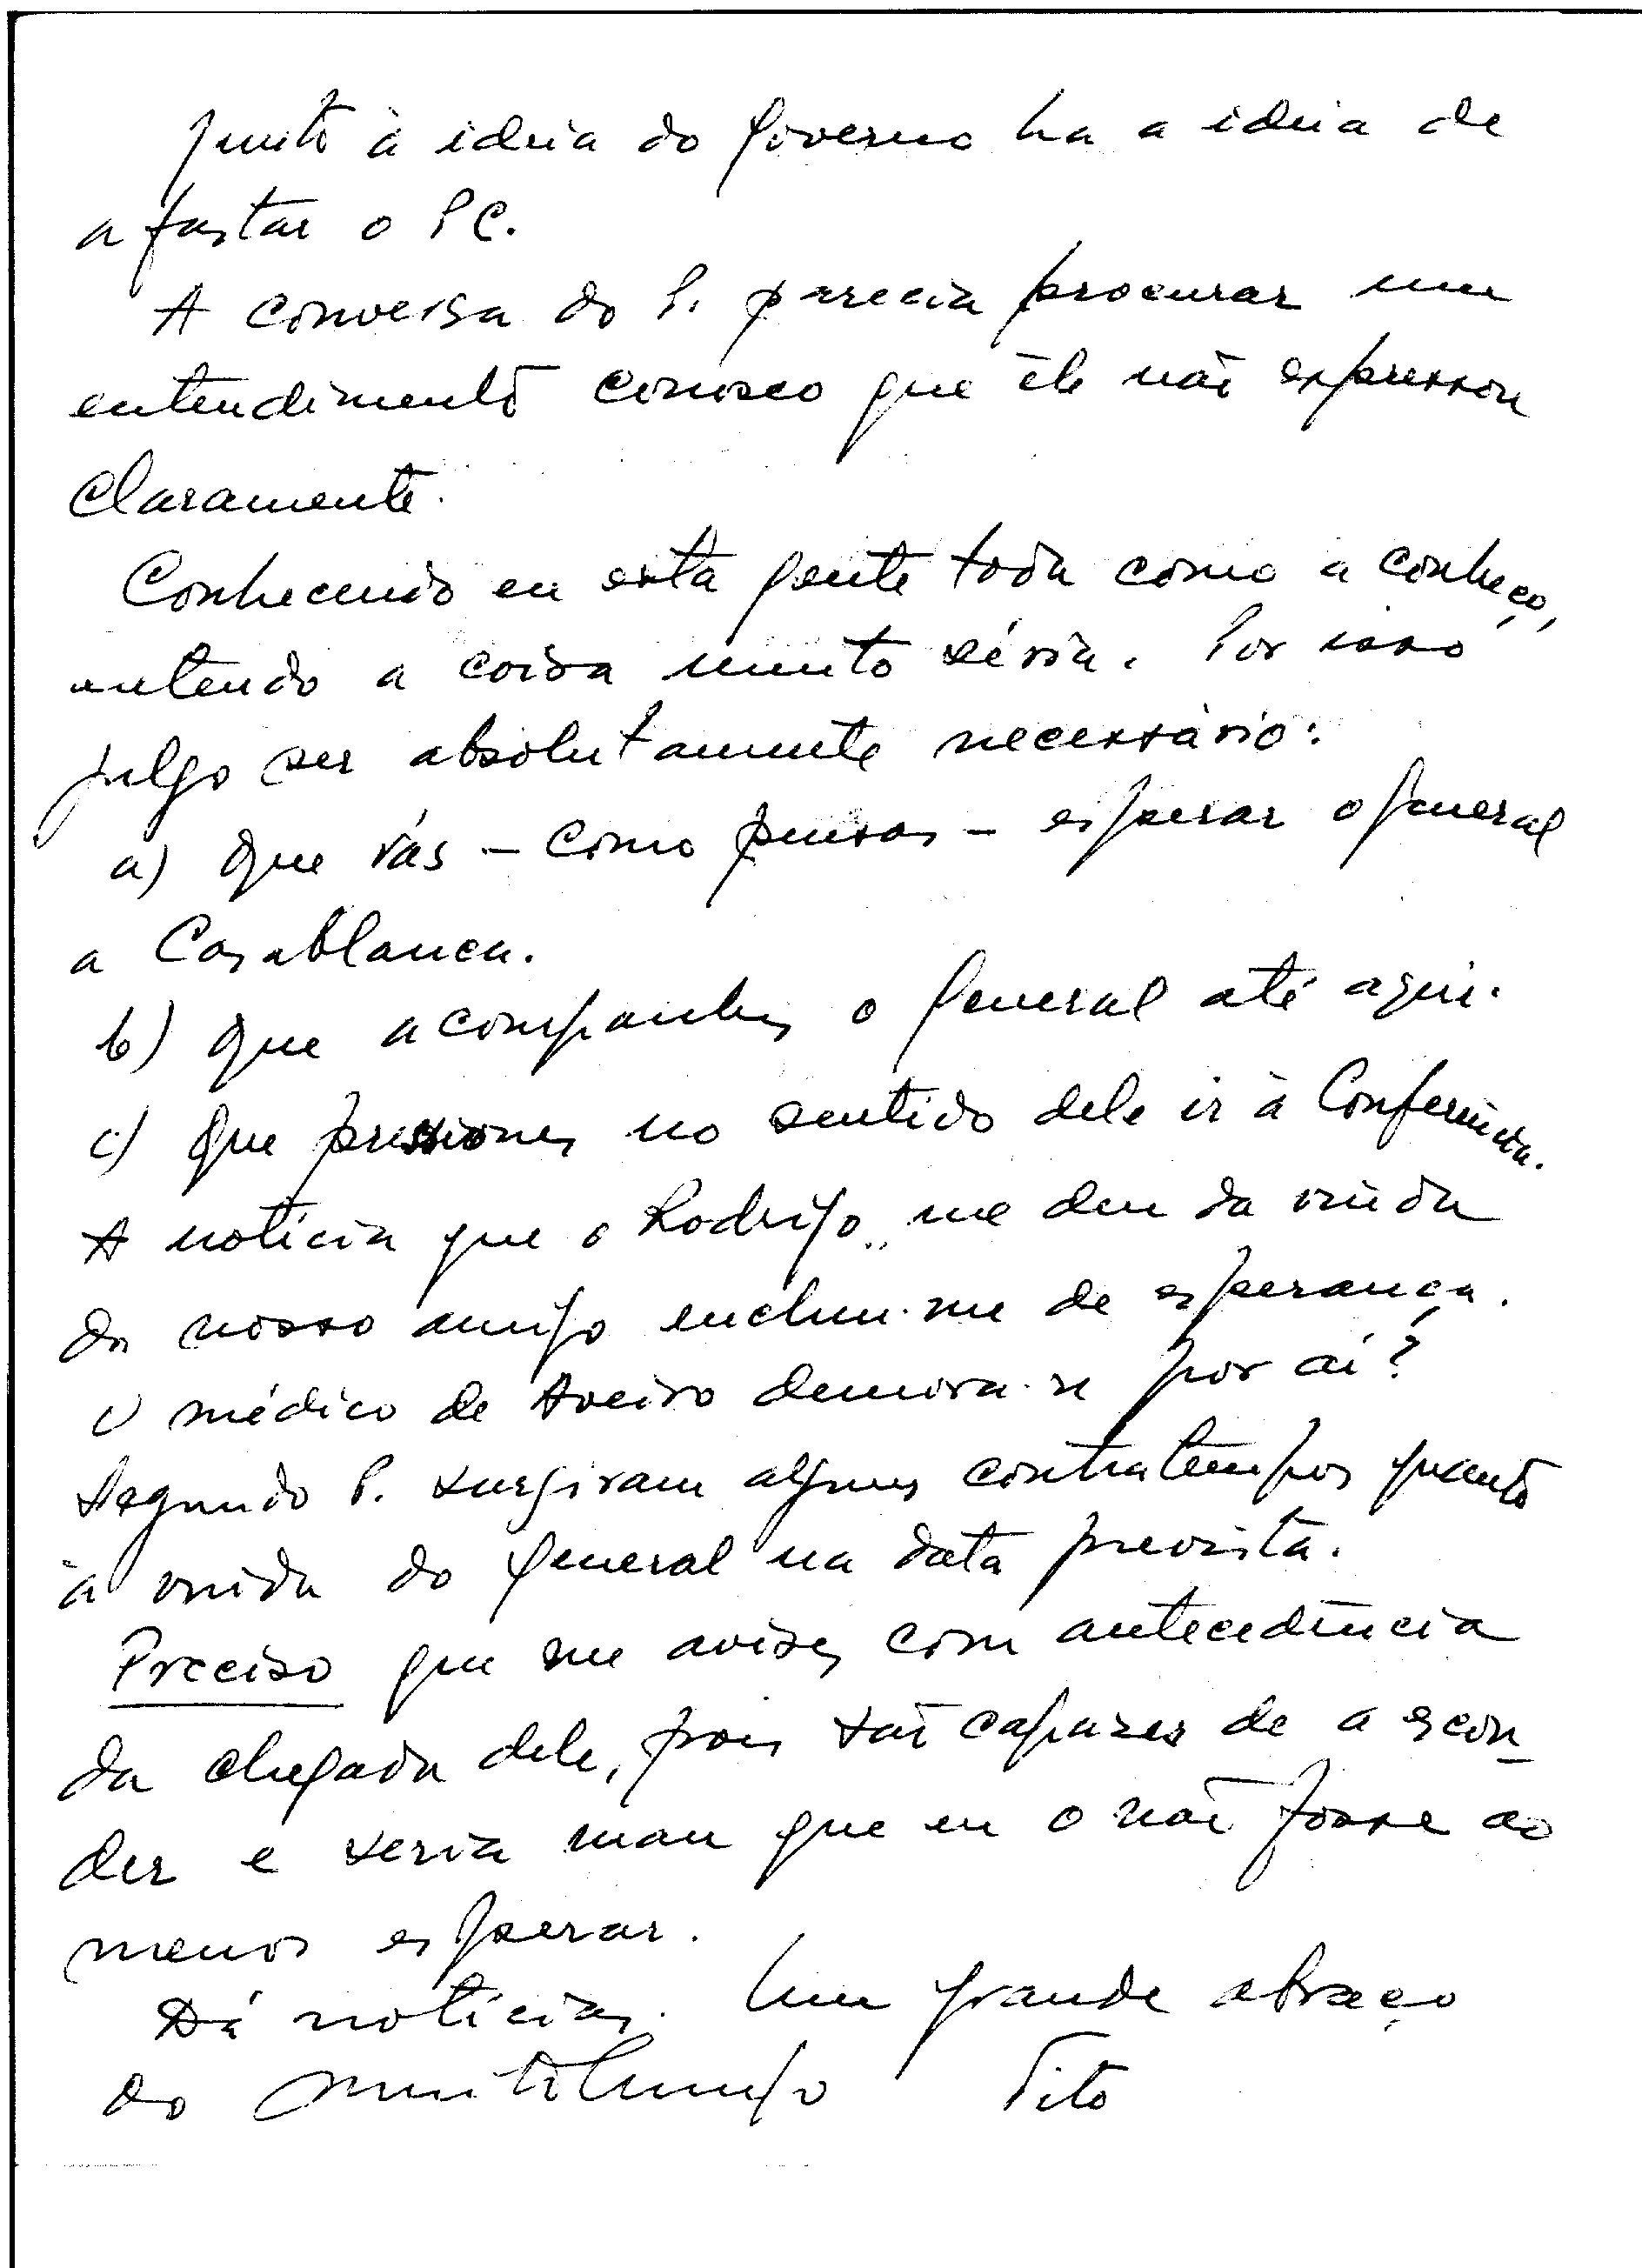 junto à ideia do governo ha a ideia de
afastar o PC.
A conversa do P. parecia procurar um
entendimento conosco que êle não expressou
claramente.
Conhecendo eu esta gente toda como a conheço,
entendo a coisa muito séria. Por isso
julgo ser absolutamente necessário:
a) que vás – como pensas – esperar o general
a Casablanca.
b) que acompanhes o general até aqui.
c) que pressiones no sentido dele ir à Conferência.
A notícia que o Rodrigo me deu da vinda
do nosso amigo encheu-me de esperança.
O médico de Aveiro demora-se por aí?
Segundo P. surgiram alguns contratempos quanto
à vinda do general na data prevista.
Preciso que me avises com antecedência
da chegada dele, pois são capazes de a escon-
der e seria mau que eu o não fosse ao
menos esperar.
Dá notícias. Um grande abraço
do muito amigo Tito